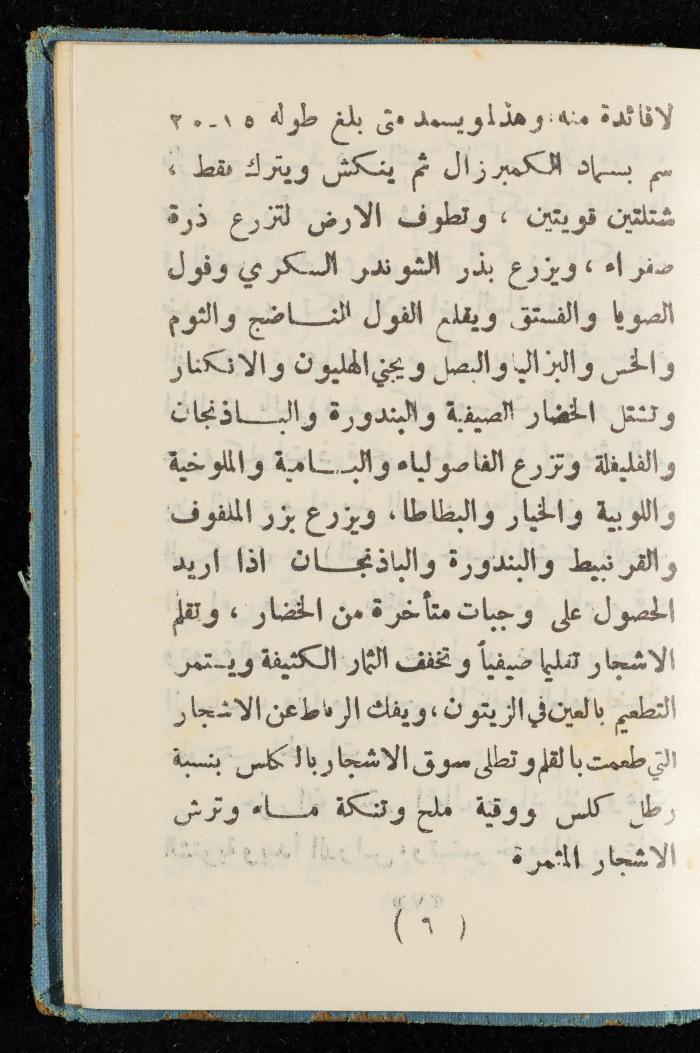 لافائدة منه، وهذا ويسمد متى بلغ طوله ١٥-٢٠
سم بسماد الكمبرزال ثم ينكش ويترك فقط ،
شتلتين قويتين ، وتطوف الارض لتزرع ذرة
صفراء ، ويزرع بذر الشوندر السكري وفول
الصويا والفستق ويقلع الفول الناضج والثوم
والخس والبزاليا والبصل ويجني الهليون والانكنار
وتشتل الخضار الصيفية والبندورة والباذنجان
والفليفلة وتزرع الفاصولياء والبامية والملوخية
واللوبية والخيار والبطاطا ، ويزرع بزر الملفوف
والقرنبيط والبندورة والباذنجان اذا اريد
الحصول على وجبات متأخرة من الخضار ، وتقلم
الاشجار تقليما صيفياً وتخفف الثمار الكثيفة ويستمر
التطعيم بالعين في الزيتون ، ويفك الرباط عن الاشجار
التي طعمت بالقلم وتطلى سوق الاشجار بالكلس بنسبة
رطل كلس ووقية ملح وتنكة ماء وترش
الاشجار المثمرة
( ٦ )